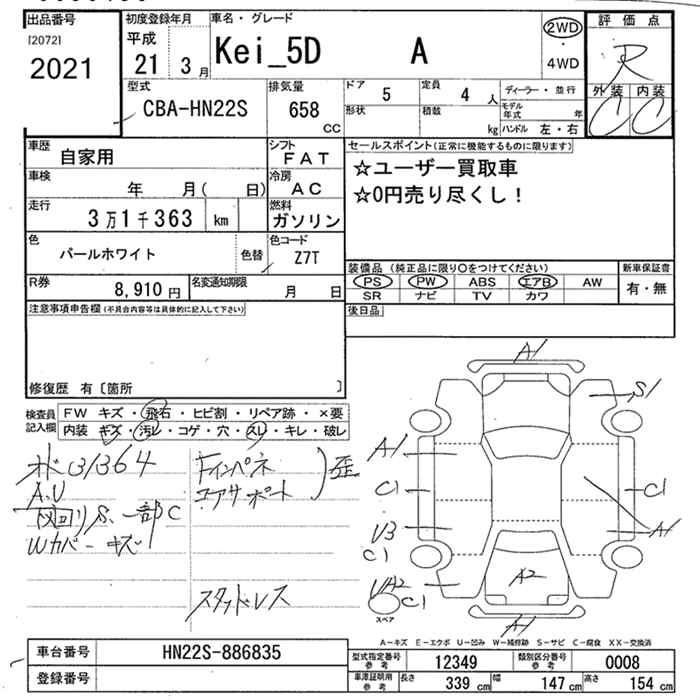 出品番号
[2072]
2021
初度登録年月
平成
21 3 月
車名・グレード
Kei_5D A
2WD
・
4WD
評価点
R
外装 内装
C C
型式
CBA-HN22S
排気量
658
CC
ドア
5
定員
4 人
形状
積載
kg
ディーラー・並行
モデル年式 年
ハンドル 左・右
車歴
自家用
シフト
FAT
車検
年 月( 日)
冷房
AC
走行
3万1千363 km
燃料
ガソリン
色
パールホワイト
色替
色コード
Z7T
R券
8,910 円
名変通知期限
月 日
セールスポイント(正常に機能するものに限ります)
☆ユーザー買取車
☆0円売り尽くし!
装備品(純正品に限り○をつけてください)
PS PW ABS エアB AW
SR ナビ TV カワ
新車保証書
有・無
後日品
注意事項申告欄(不具合内容等は具体的に記入して下さい)
修復歴 有〔箇所 〕
検査員
記入欄
FW キズ・飛石・ヒビ割・リペア跡・×要
内装 キズ・汚レ・コゲ・穴・スレ・キレ・破レ
31364
A.U
下回りS.一部C
Wカバーキズ
Fインパネ
エアサポート
歪
スタッドレス
A1
S1
A1
C1
C1
U3
C1
A1
UA2
C1
A2
A1
スペア
A-キズ E-エクボ U-凹み W-補修跡 S-サビ C-腐食 XX-交換済
車台番号
HN22S-886835
登録番号
型式指定番号
参考
12349
類別区分番号
参考
0008
車庫証明用
参考
長さ
339 cm
幅
147 cm
高さ
154 cm